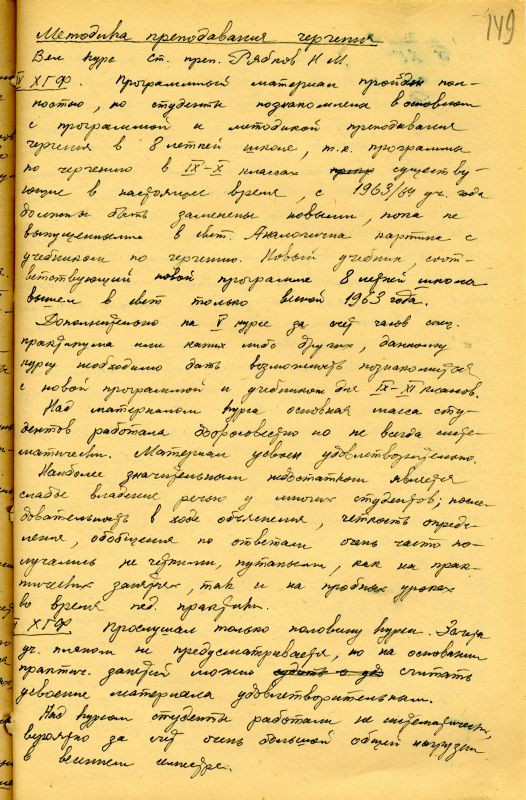 149
Методика преподавания черчения
Вел курс ст. преп. Рябков Н М.
V ХГФ. Программный материал пройден пол-
ностью, но студенты познакомлены в основном
с программой и методикой преподавания
черчения в 8 летней школе, т.к. программы
по черчению в IX-X классах существу-
ющие в настоящее время, с 1963/64 уч. года
должны быть заменены новыми, пока не
выпущенными в свет. Аналогична картина с
учебником по черчению. Новый учебник, соот-
ветствующий новой программе 8 летней школы
вышел в свет только весной 1963 года.
Дополнительно на V курсе за счет часов спец.
практикума или каких либо других, данному
курсу необходимо дать возможность познакомиться
с новой программой и учебником для IX-XI классов.
Над материалом курса основная масса сту-
дентов работала добросовестно но не всегда систе-
матически. Материал усвоен удовлетворительно.
Наиболее значительным недостатком является
слабое владение речью у многих студентов; после-
довательность в ходе объяснения, четкость опреде-
ления, обобщения по ответам очень часто по-
лучались не чёткими, путаными, как на прак-
тических занятиях, так и на пробных уроках
во время пед. практики.
ХГФ Прослушал только половину курса. Зачёта
уч. планом не предусматривается, но на основании
практич. занятий можно считать
усвоение материала удовлетворительным.
Над курсом студенты работали не систематически,
вероятно за счёт очень большой общей нагрузки
в весеннем семестре.